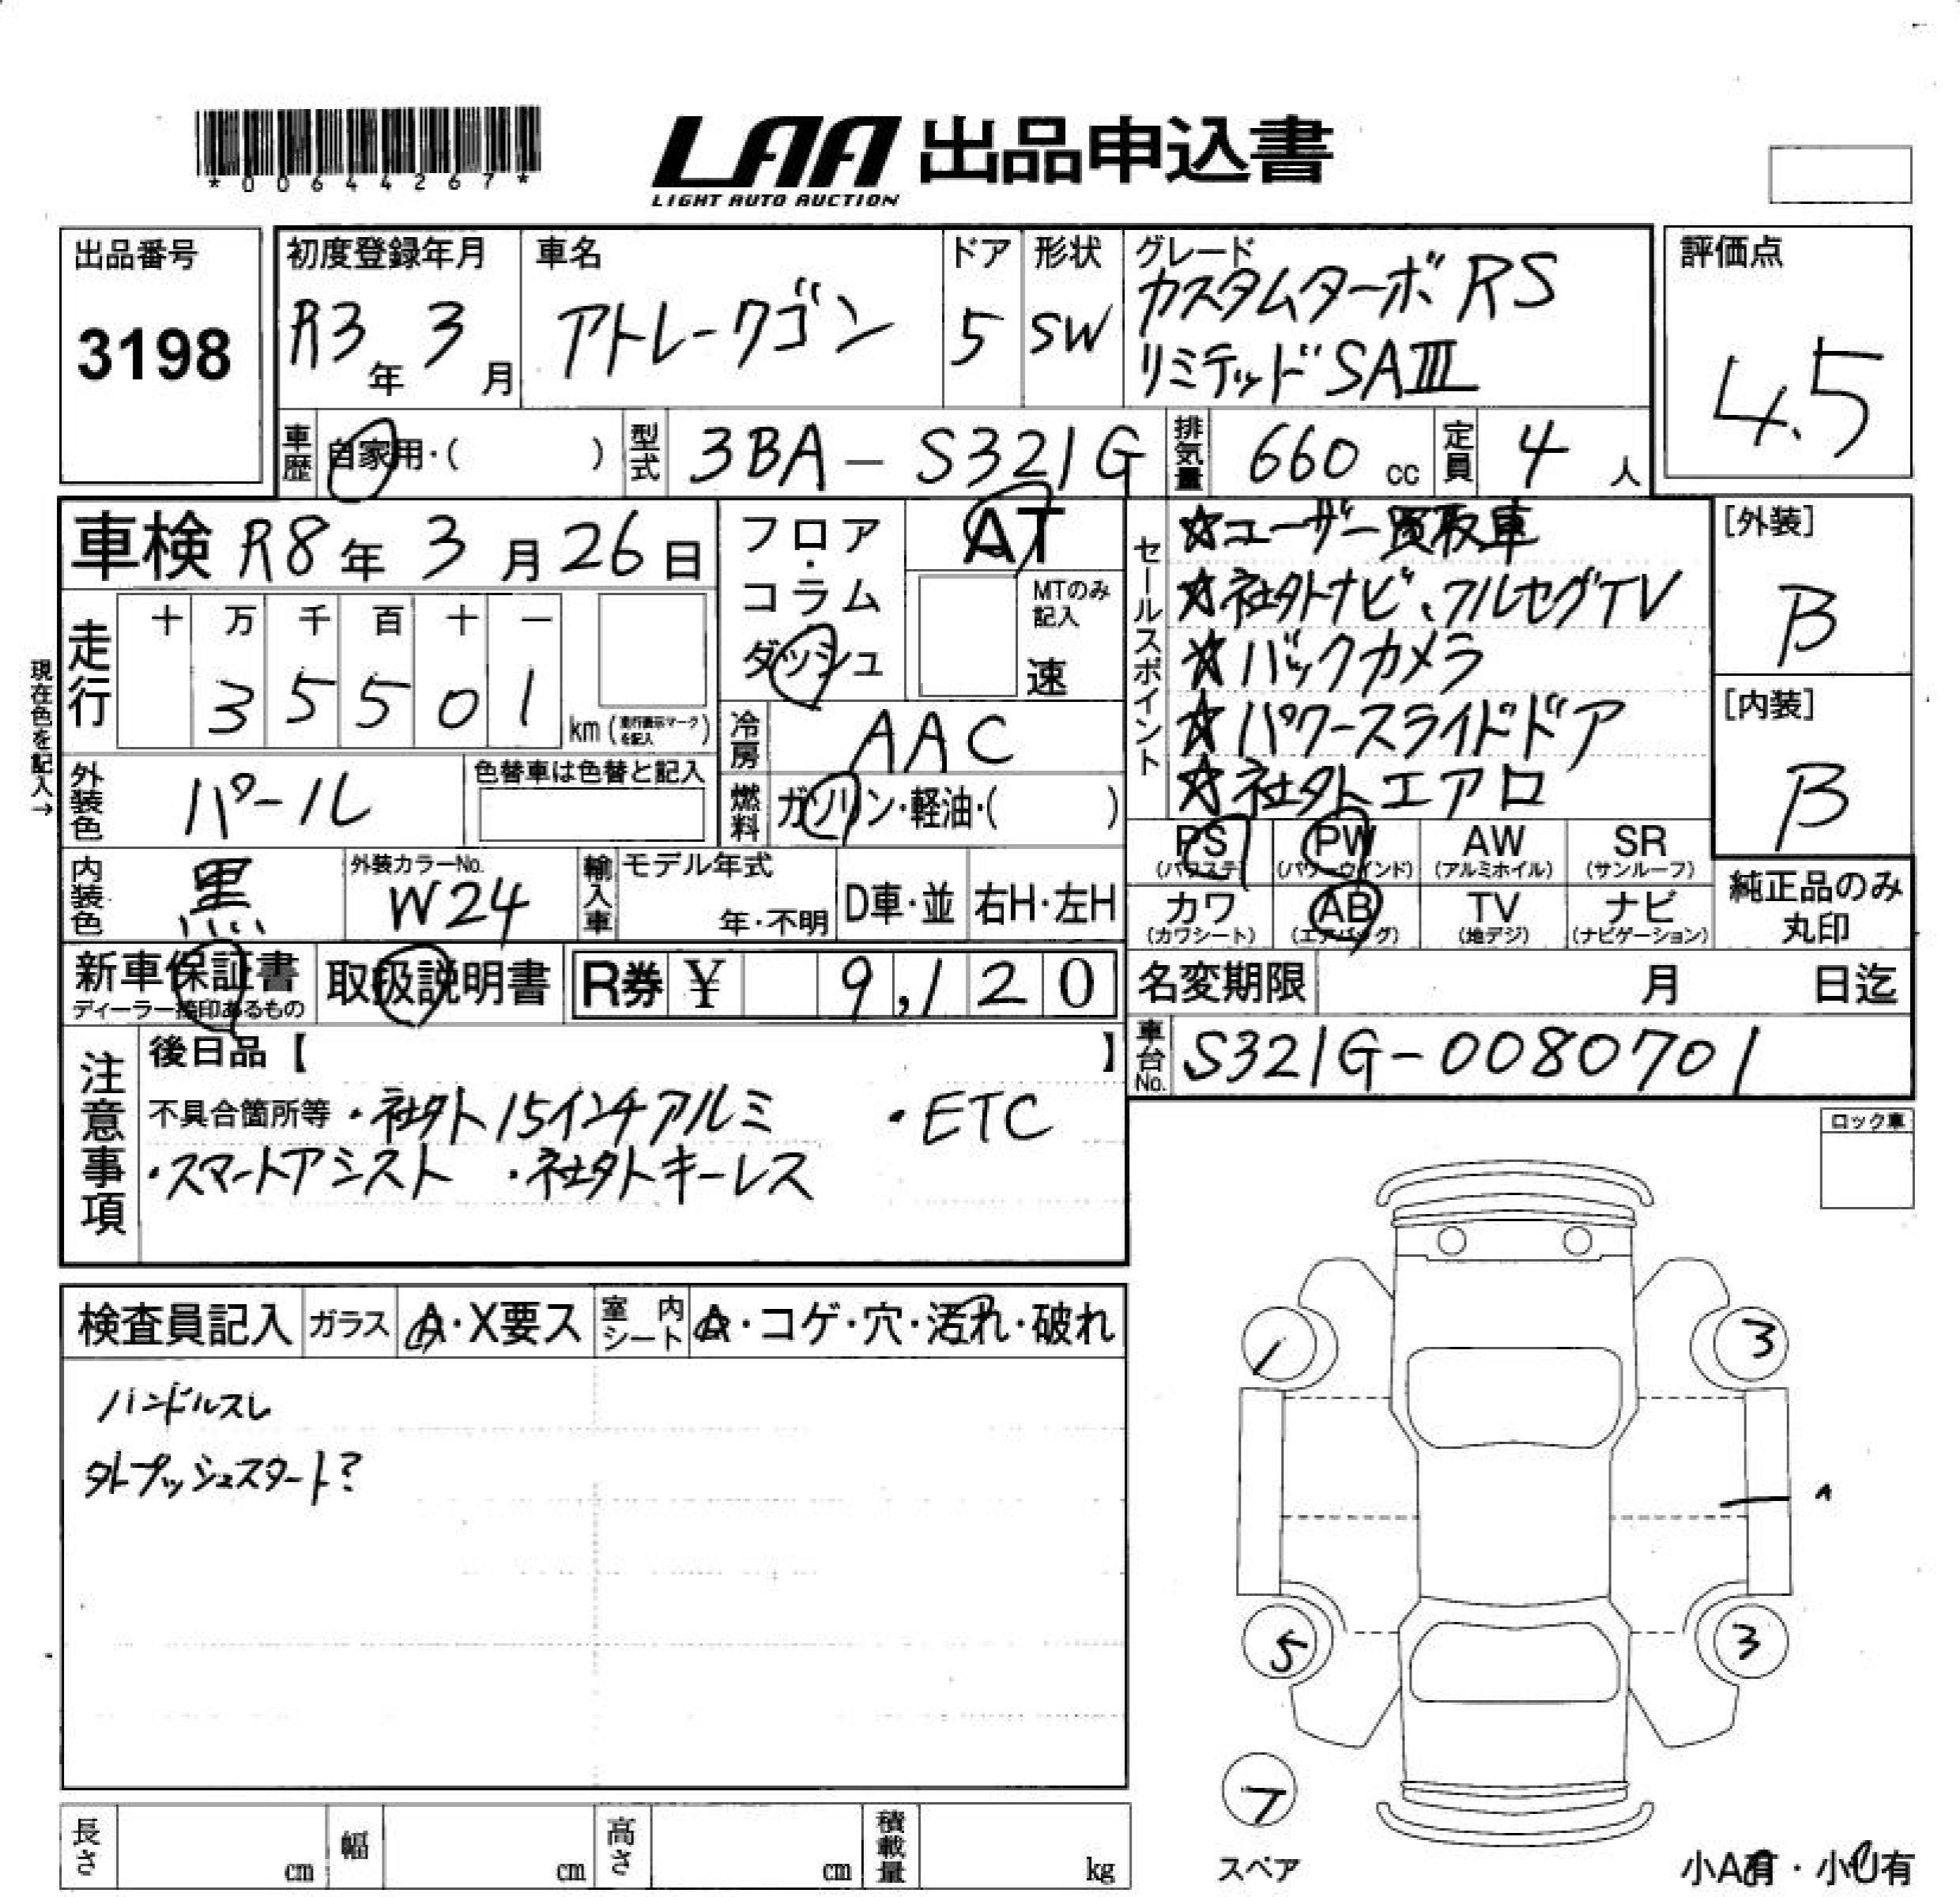 *00644267*
LAA 出品申込書
LIGHT AUTO AUCTION
出品番号
3198
初度登録年月
R3年 3月
車名
アトレーワゴン
ドア
5
形状
SW
グレード
カスタムターボRS
リミテッドSAⅢ
評価点
4.5
車歴 自家用・( )
型式 3BA-S321G
排気量 660 cc
定員 4 人
車検 R8年 3月 26日
フロア・コラム
ダッシュ
AT
MTのみ
記入
速
走行
十 万 千 百 十 一
3 5 5 0 1
km (走行表示マークを記入)
現在色を記入→
冷房 AAC
外装色 パール
色替車は色替と記入
燃料 ガソリン・軽油・( )
内装色 黒
外装カラーNo.
W24
輸入車
モデル年式
年・不明
D車・並
右H・左H
セールスポイント
☆ユーザー買取車
☆社外ナビ、フルセグTV
☆バックカメラ
☆パワースライドドア
☆社外エアロ
[外装]
B
[内装]
B
PS (パワステ)
PW (パワーウインド)
AW (アルミホイル)
SR (サンルーフ)
カワ (カワシート)
AB (エアバッグ)
TV (地デジ)
ナビ (ナビゲーション)
純正品のみ
丸印
新車保証書
ディーラー捺印あるもの
取扱説明書
R券 ¥ 9,120
名変期限 月 日迄
車台No. S321G-0080701
注意事項
後日品【 】
不具合箇所等 ・社外15インチアルミ ・ETC
・スマートアシスト ・社外キーレス
ロック車
検査員記入
ガラス A・X要ス
室内シート A・コゲ・穴・汚れ・破れ
ハンドルスレ
外プッシュスタート?
1
3
A
5
3
7
スペア
小A有・小U有
長さ cm
幅 cm
高さ cm
積載量 kg